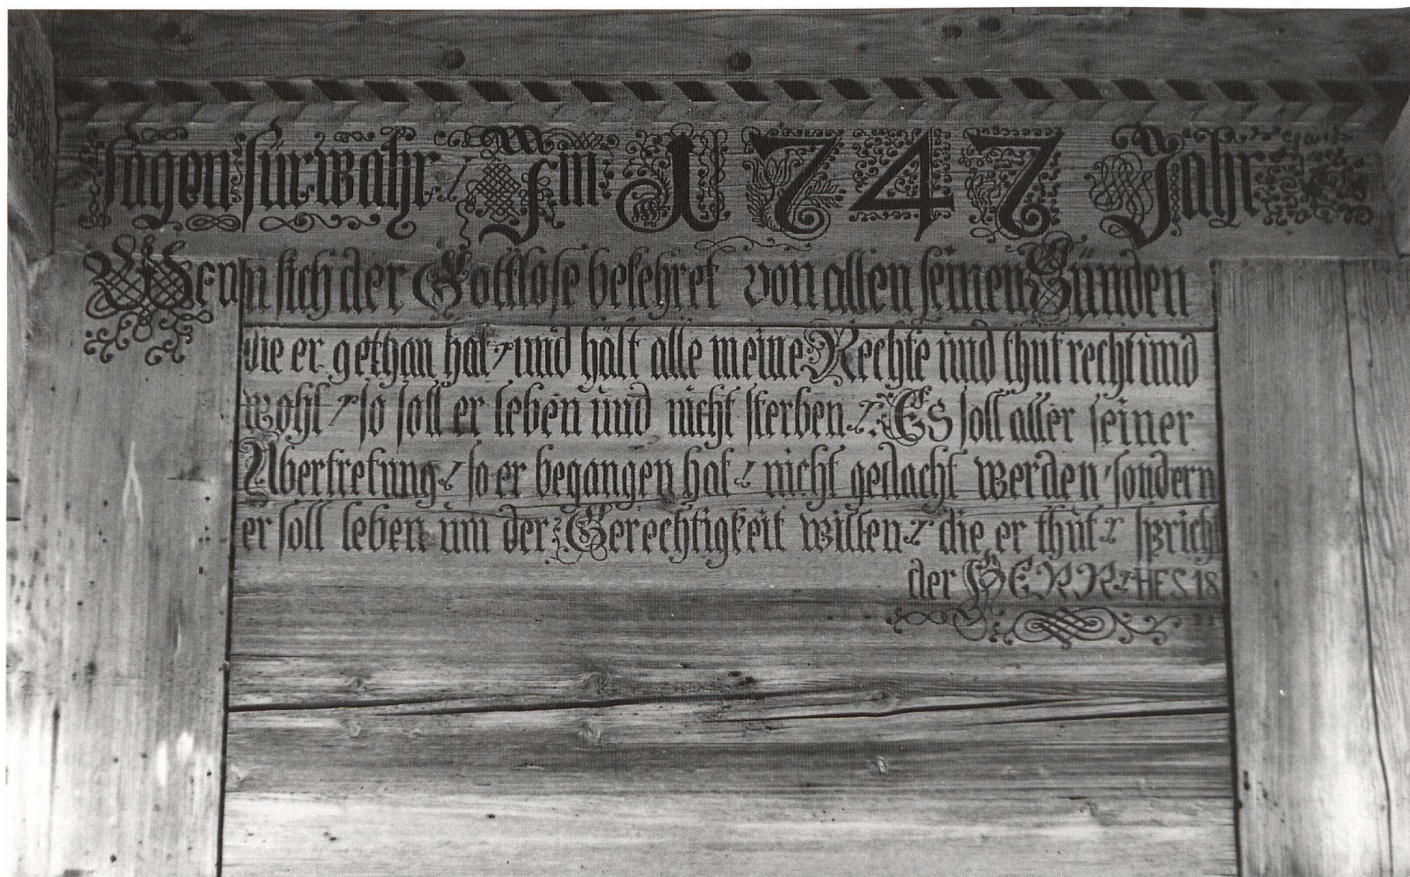 sagen fürwahr. Im 1747 Jahr
Wenn sich der Gottlose bekehret von allen seinen Sünden
die er gethan hat, und hält alle meine Rechte und thut recht und
wohl, so soll er leben und nicht sterben. Es soll aller seiner
Übertretung, so er begangen hat, nicht gedacht werden, sondern
er soll leben um der Gerechtigkeit willen, die er thut, spricht
der HERR, HES. 18